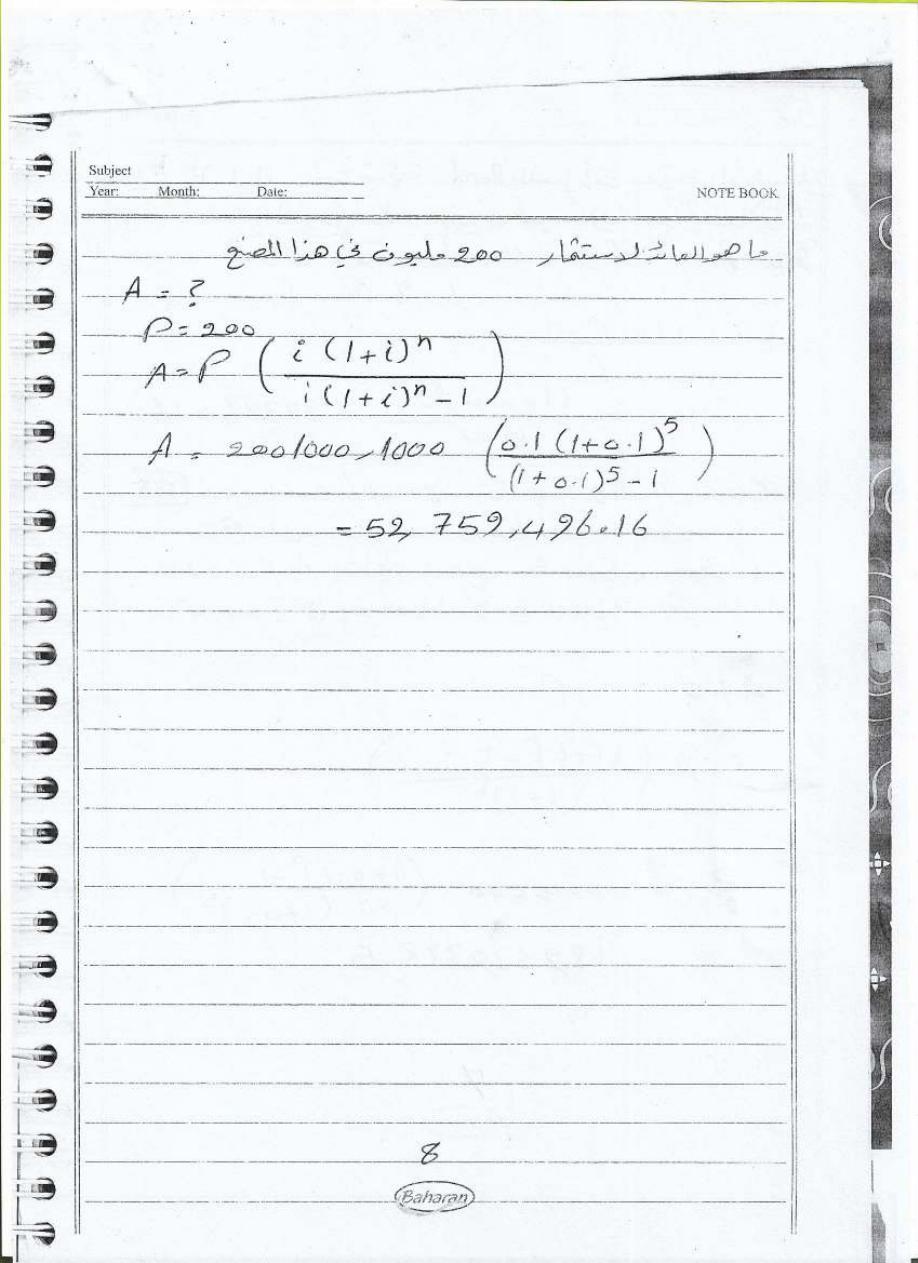 Subject
Year: Month: Date: NOTE BOOK
ما هو العائد لاستثمار 200 مليون في هذا المصنع
A = ?
P = 200
A = P ( i (1+i)^n / i (1+i)^n - 1 )
A = 200,000,000 ( 0.1 (1+0.1)^5 / (1+0.1)^5 - 1 )
= 52,759,496.16
8
Baharan